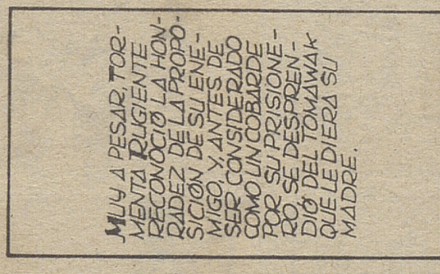 MUY A PESAR, TOR-
MENTA RUGIENTE
RECONOCIÓ LA HON-
RADEZ DE LA PROPO-
SICIÓN DE SU ENE-
MIGO, Y, ANTES DE
SER CONSIDERADO
COMO UN COBARDE
POR SU PRISIONE-
RO, SE DESPREN-
DIÓ DEL TOMAWAK
QUE LE DIERA SU
MADRE.